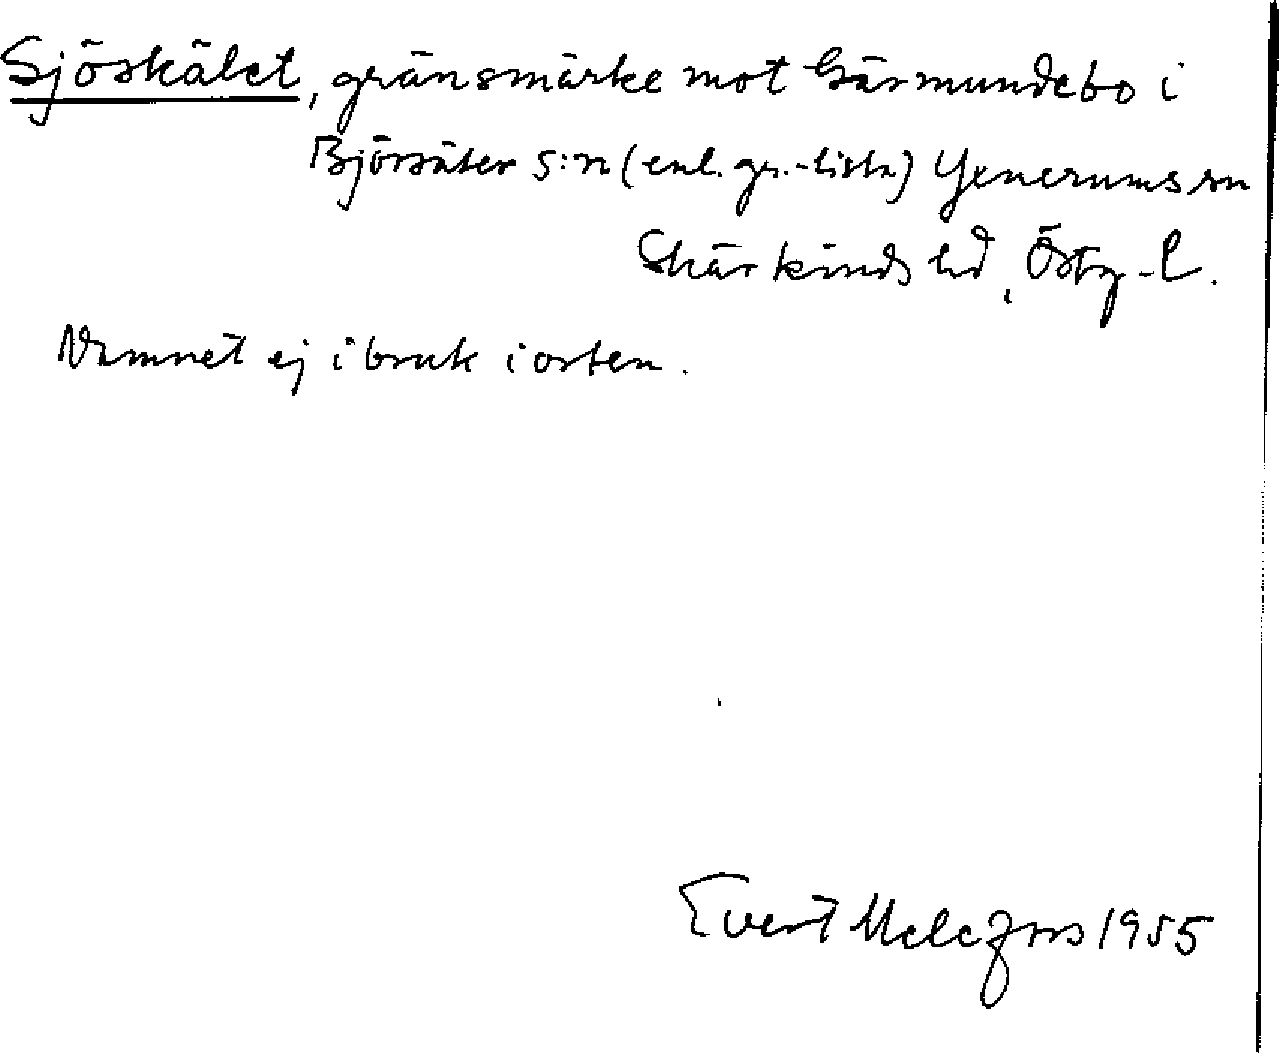 Sjöskälet, gränsmärke mot Gärmundebo i
Björsäter s:n (enl. gr.-lista) Yxnerums sn
Skärkinds hd, Östg-l.
Namnet ej i bruk i orten.
Evert Melefors 1955